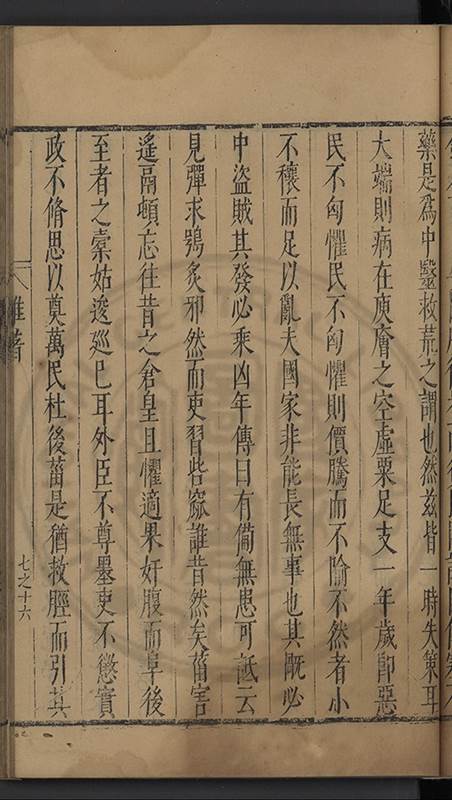 藥是爲中毉救荒之謂也然兹皆一時失策耳
大端則病在庾廥之空虛粟足支一年歲卽惡
民不匈懼民不匈懼則價騰而不踰不然者小
不穰而足以亂夫國家非能長無事也其旤必
中盜賊其發必乘凶年傳曰有僃無患可詆云
見彈求鴞炙邪然而吏習呰窳誰昔然矣葘害
遙鬲頓忘徃昔之倉皇且懼適果奸腹而阜後
至者之橐姑逡廵巳耳外臣不尊墨吏不懲實
政不脩思以奠萬民杜後葘是猶救脛而引其
雜著
七之十六